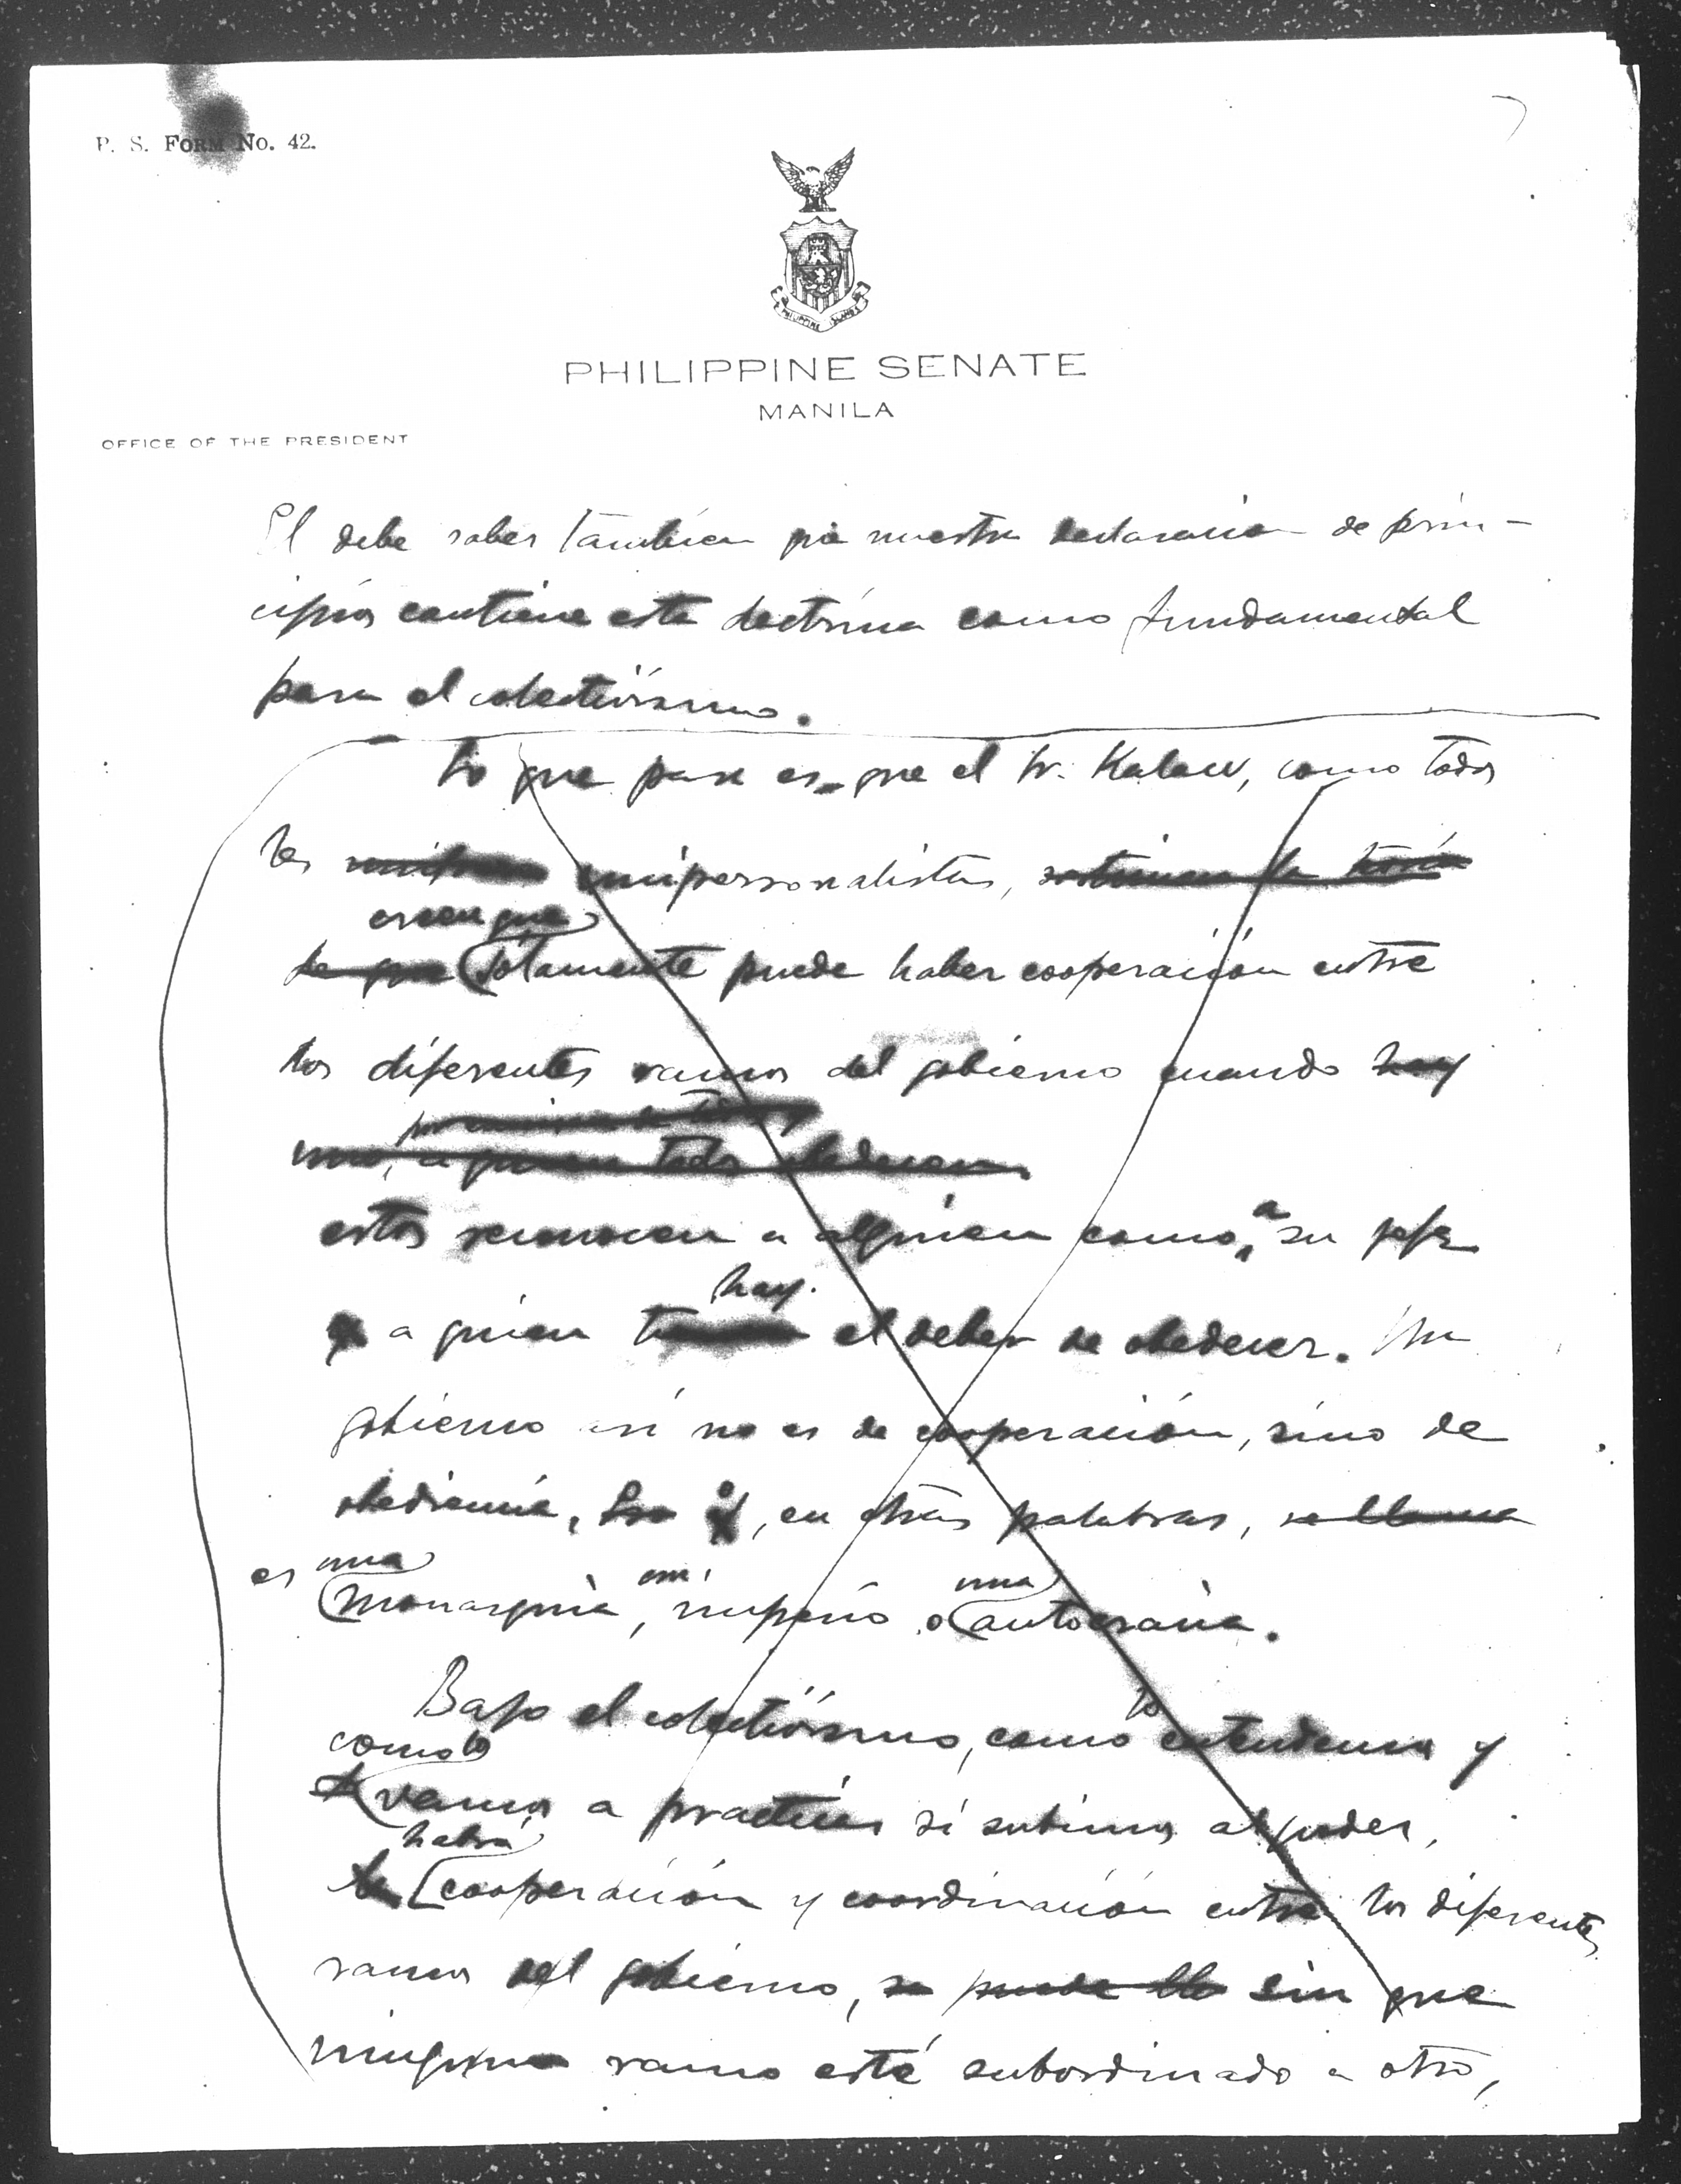 P. S. FORM No. 42.
7
PHILIPPINE ISLANDS
PHILIPPINE SENATE
MANILA
OFFICE OF THE PRESIDENT
El debe saber tambien que nuestra declaracion de prin-
cipios contiene esta doctrina como fundamental
para el colectivismo.
Lo que pasa es que el Sr. Kalaw, como todos
los unipersonalistas, sostienen la tesis
creen que
de que sólamente puede haber cooperación entre
los diferentes ramos del gobierno cuando hay
por encima de todos
uno, a quien todos obedecen.
estos reconocen a alguien como a su jefe
a quien hay el deber de obedecer. Un
gobierno así no es de cooperación, sino de
obediencia. Eso, en otras palabras, se llama
es una monarquía, un imperio o una autocracia.
Bajo el colectivismo, como lo entendemos y
como lo
vamos a practicar si subimos al poder,
habrá
cooperación y coordinación entre los diferentes
ramos del gobierno, se puede sin que
ninguno ramo esté subordinado a otro,